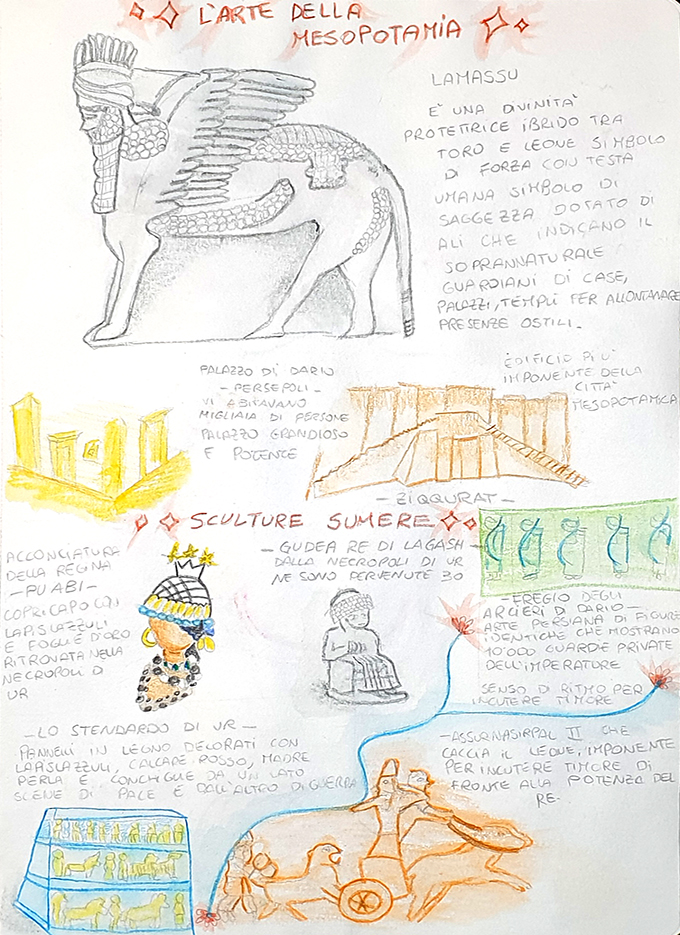 L'ARTE DELLA
MESOPOTAMIA
LAMASSU
E' UNA DIVINITA'
PROTETRICE IBRIDO TRA
TORO E LEONE SIMBOLO
DI FORZA CON TESTA
UMANA SIMBOLO DI
SAGGEZZA DOTATO DI
ALI CHE INDICANO IL
SOPRANNATURALE
GUARDIANI DI CASE,
PALAZZI, TEMPLI PER ALLONTANARE
PRESENZE OSTILI.
PALAZZO DI DARIO
- PERSEPOLI -
VI ABITAVANO
MIGLIAIA DI PERSONE
PALAZZO GRANDIOSO
E POTENTE
EDIFICIO PIU'
IMPONENTE DELLA
CITTA'
MESOPOTAMICA
- ZIQQURAT -
SCULTURE SUMERE
ACCONCIATURA
DELLA REGINA
- PUABI -
COPRICAPO CON
LAPISLAZZULI
E FOGLIE D'ORO
RITROVATA NELLA
NECROPOLI DI
UR
- GUDEA RE DI LAGASH -
DALLA NECROPOLI DI UR
NE SONO PERVENUTE 30
- FREGIO DEGLI
ARCIERI DI DARIO -
ARTE PERSIANA DI FIGURE
IDENTICHE CHE MOSTRANO
10'000 GUARDIE PRIVATE
DELL'IMPERATURE
SENSO DI RITMO PER
INCUTERE TIMORE
- LO STENDARDO DI UR -
PANNELLI IN LEGNO DECORATI CON
LAPISLAZZULI, CALCARE ROSSO, MADRE
PERLA E CONCHIGLIE DA UN LATO
SCENE DI PACE E DALL'ALTRO DI GUERRA
- ASSURNASIRPAL II CHE
CACCIA IL LEONE, IMPONENTE
PER INCUTERE TIMORE DI
FRONTE ALLA POTENZA DEL
RE.